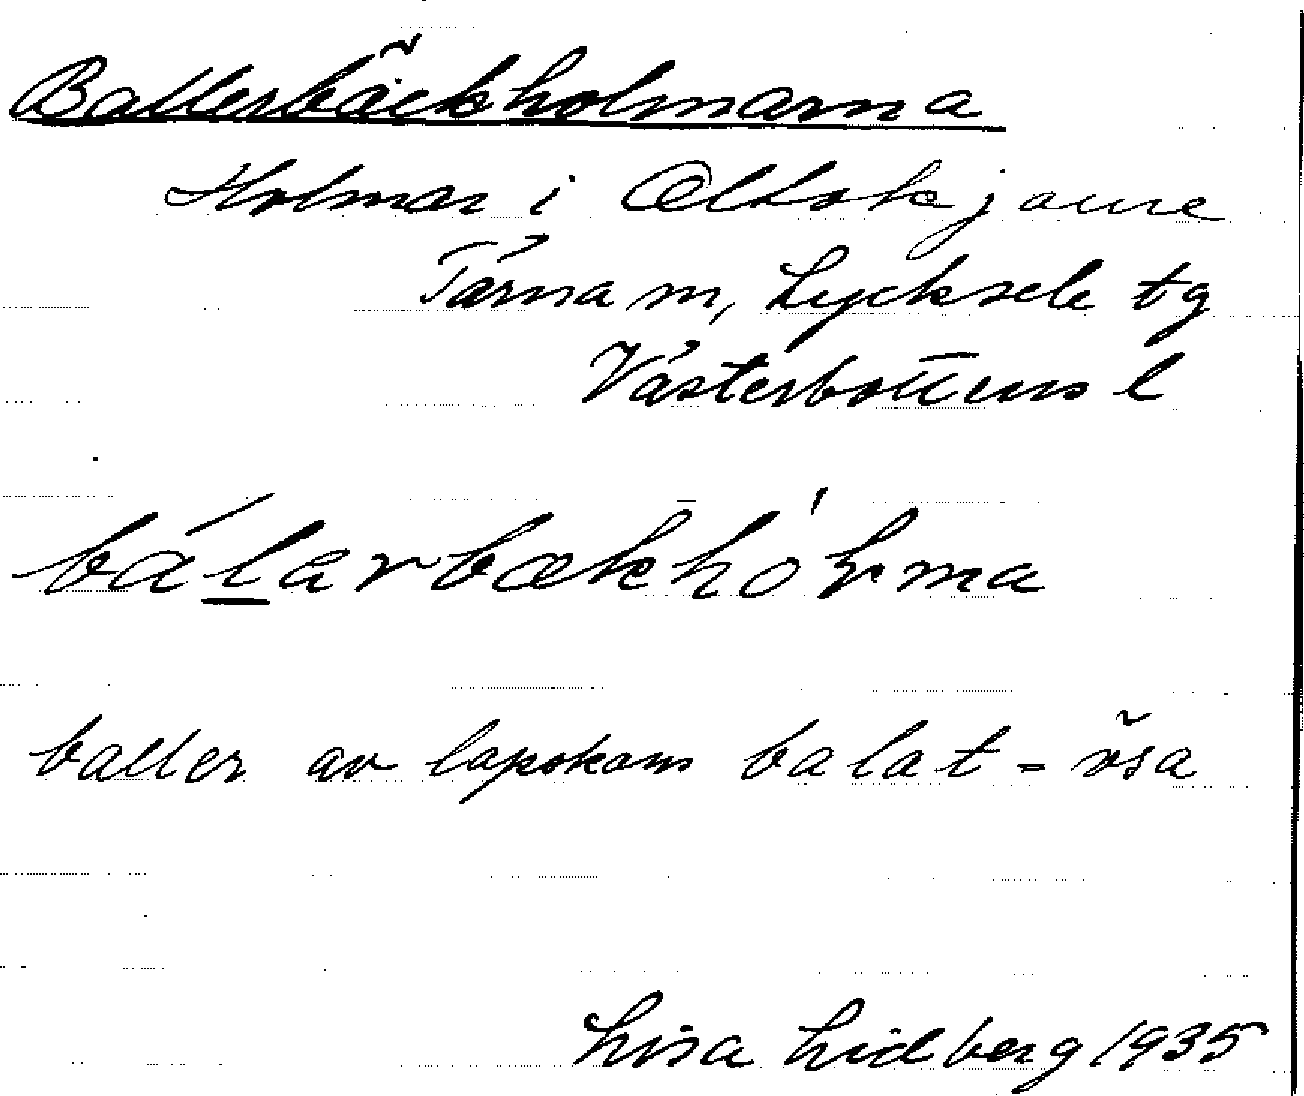 Ballerbäckholmarna
Holmar i Altsokjaure
Tärna m, Lycksele tg
Västerbottens l
báḻarbækhóḷma
baller av lapskans balat - v̌sa
Lisa Lidberg 1935